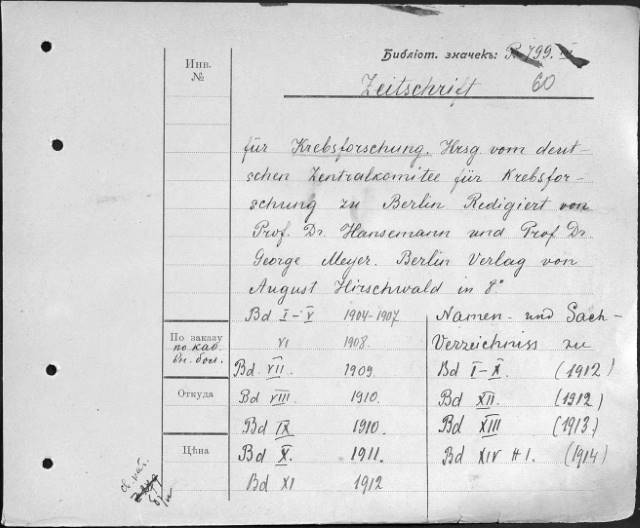 Библіот. значекъ: 799.
Инв.
№
Zeitschrift 60
für Krebsforschung. Hrsg. vom deut-
schen Zentralkomitee für Krebsfor-
schung zu Berlin Redigiert von
Prof. Dr. Hansemann und Prof. Dr.
George Meyer. Berlin Verlag von
August Hirschwald in 8°
Bd I-V 1904-1907
VI 1908.
Bd. VII. 1909.
Bd VIII 1910.
Bd IX 1910.
Bd X. 1911.
Bd XI 1912
Namen- und Sach-
Verzeichniss zu
Bd I-X. (1912)
Bd XII. (1912)
Bd XIII (1913)
Bd XIV H 1. (1914)
По заказу
по каб.
вн. бол.
Откуда
Цѣна